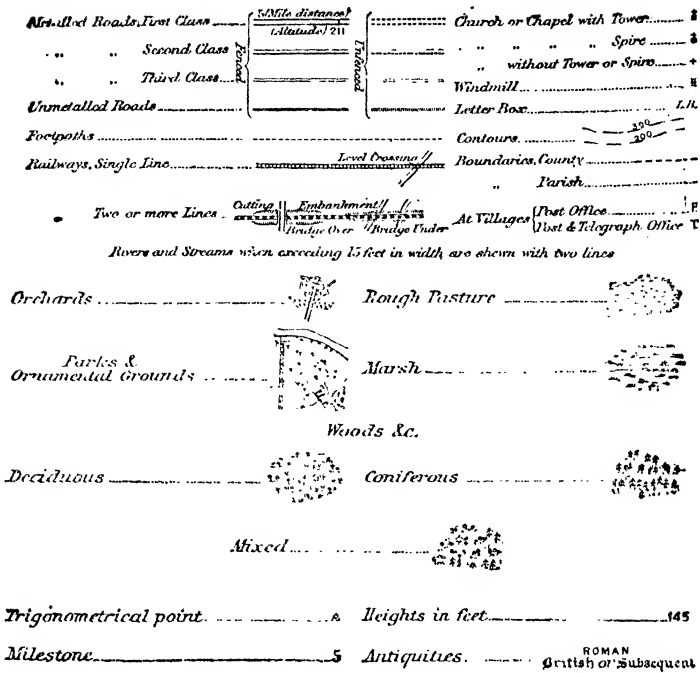 Metalled Roads, First Class
(Mile distance)
(Altitude) 211
Second Class
Third Class
Fenced
Unfenced
Unmetalled Roads
Footpaths
Railways, Single Line
Level Crossing
Two or more Lines
Cutting
Embankment
Bridge Over
Bridge Under
Church or Chapel with Tower
" " " " Spire
" without Tower or Spire
Windmill
Letter Box L.B.
Contours 300
200
Boundaries, County
" Parish
At Villages { Post Office P
Post & Telegraph Office T
Rivers and Streams when exceeding 15 feet in width are shown with two lines
Orchards
Rough Pasture
Parks &
Ornamental Grounds
Marsh
Woods &c.
Deciduous
Coniferous
Mixed
Trigonometrical point
Heights in feet 145
Milestone 5
Antiquities. ROMAN
British or Subsequent